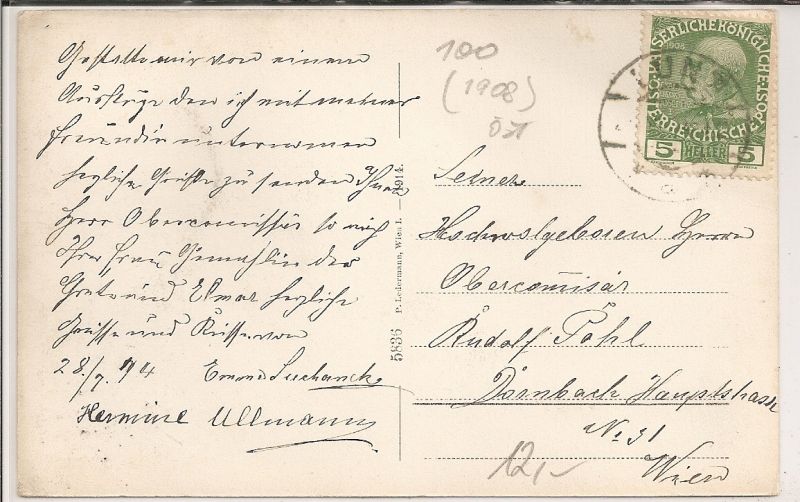 Gestatte mir von einem
Ausfluge den ich mit meiner
Freundin unternommen
herzliche Grüße zu senden Ihnen
Herr Obercommissär so auch
Ihrer Frau Gemahlin der
Greta und Elmar herzliche
Grüsse und Küsse von
28./7. 14 Emmi Suchanek
Hermine Ullmann
5836 P. Ledermann, Wien I. — 1914.
100
(1908)
ÖST
KAISERLICHE KÖNIGLICHE
ÖSTERREICHISCHE POST
1908
5 HELLER 5
Seiner
Hochwolgeboren Herrn
Obercomissär
Rudolf Pohl
Dornbach Hauptstrasse
No 31
Wien
12,-